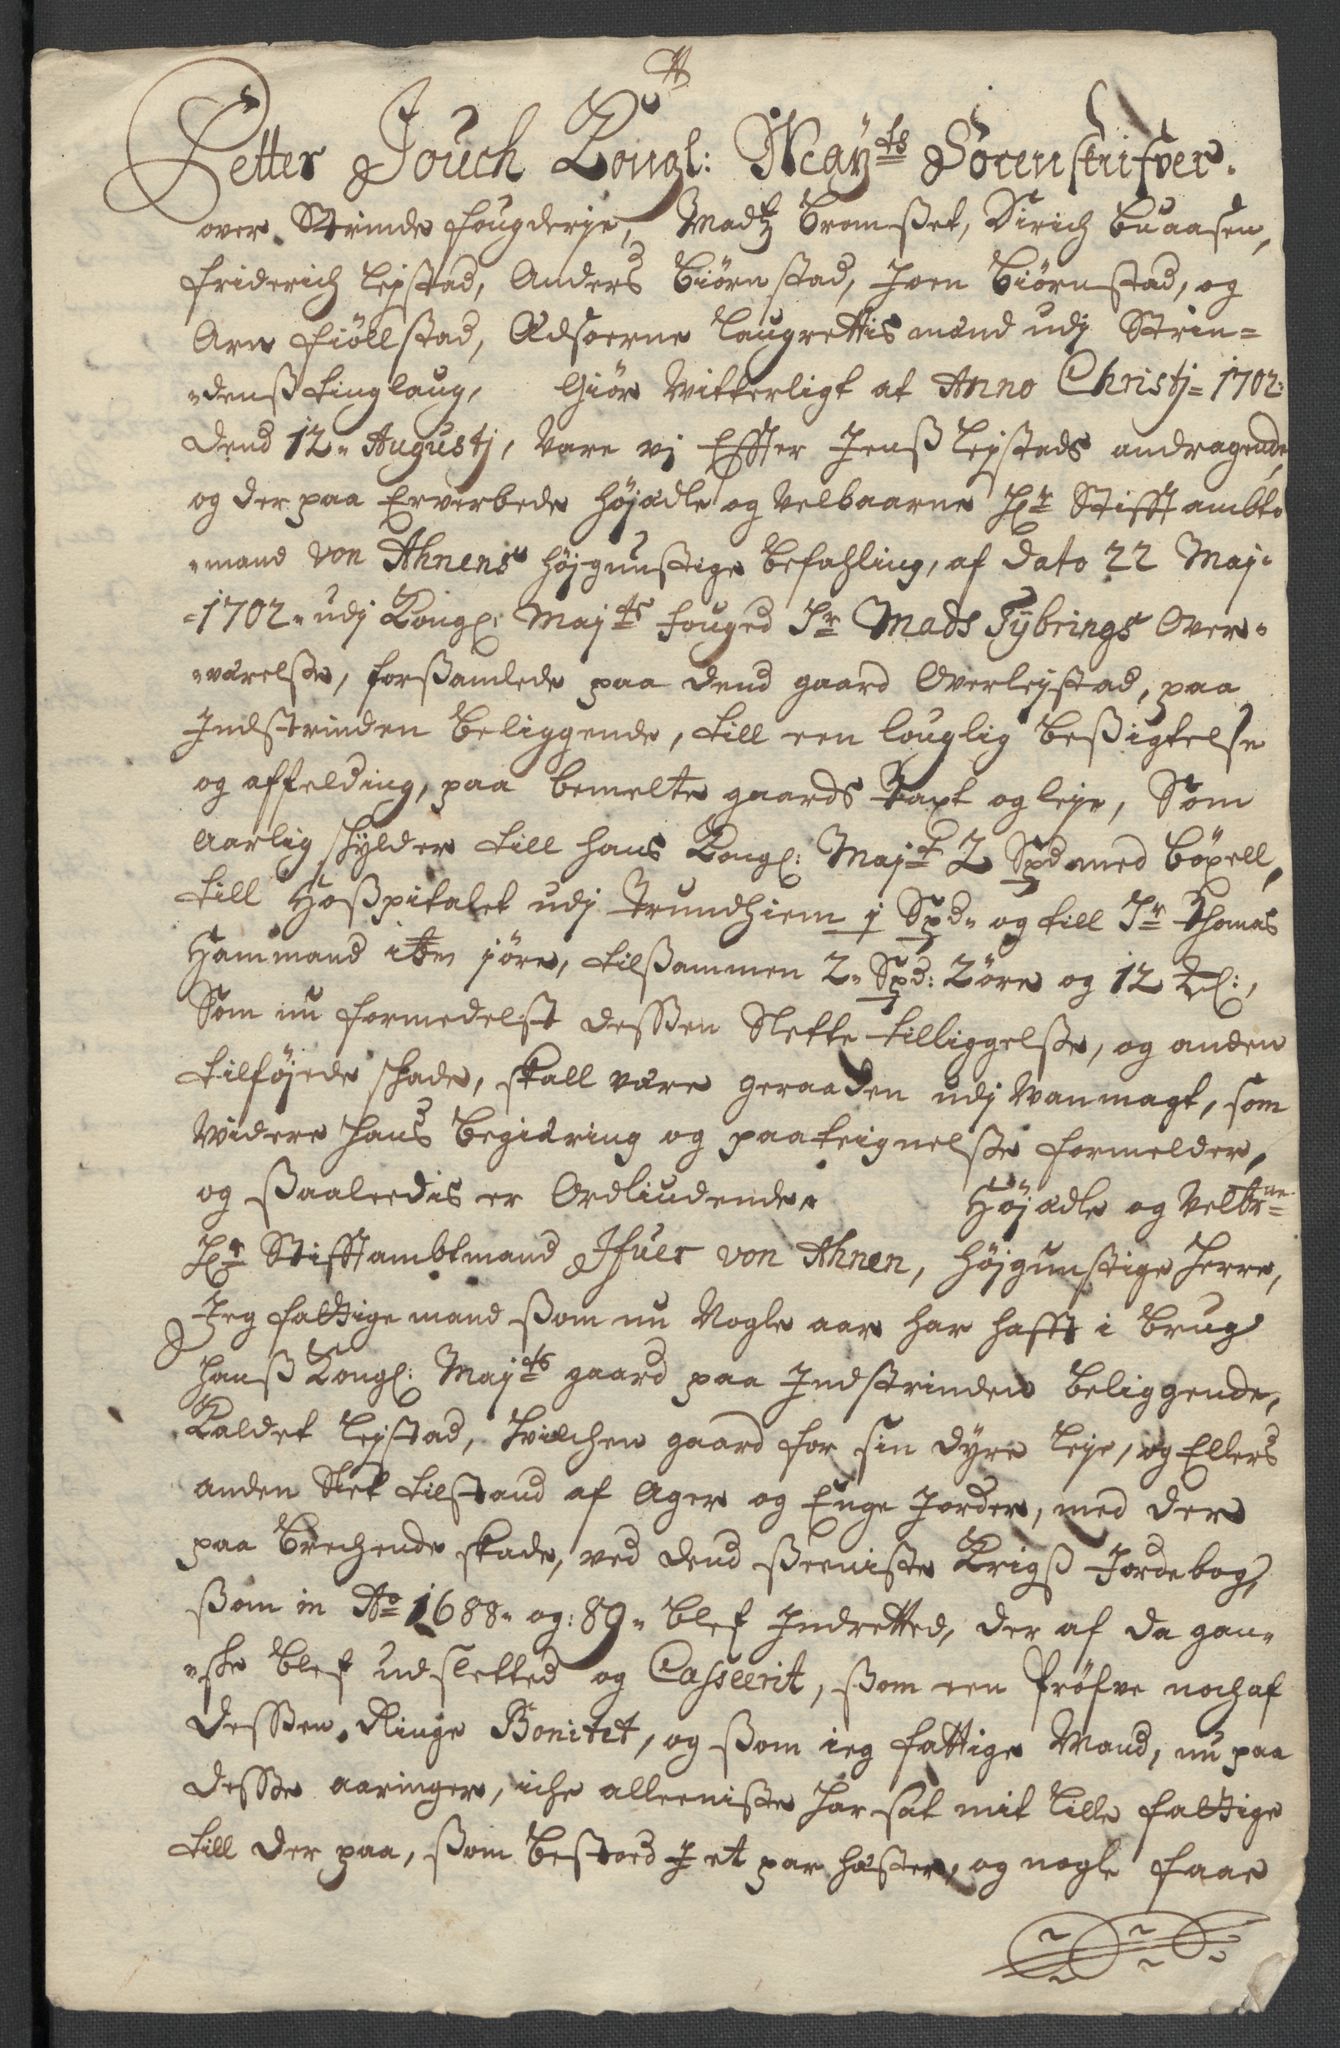 A
Petter Jouch Kongl: Maÿ<sup>ts</sup> Sorenskrifver.
over Strinde fougderje, Madtz Bromsset, Dirich buaasen,
friderich lejstad, Anders Biörnstad, Joen Biörnstad, og
Arn fiöllstad, Edsorne laugrettis mænd udj Strin=
=denss tinglaug, Giör Witterligt at Anno Christj = 1702:
dend 12= Augustj, vare vj Effter Jenss lejstads andragende,
og der paa Erverbede Höjædle og velbaarne H<sup>r</sup> Stifftambts
=mand von Ahnens höjgunstige befahling, af dato 22 Maj.
=1702= udj Kongl: Maj<sup>ts</sup> fouged S<sup>r</sup> Mads Tÿbrings Over=
=værelsse, forssamlede paa dend gaard Overlejstad, paa
Indstrinden beliggende, till een louglig bessigtelse
og affelding, paa bemelte gaards taxt og leje, Som
aarlig skylder till hans Kongl: Maj<sup>t</sup> 2 Spd med böxell,
till Hosspitalet udj Trundhiem j Spd= og till S<sup>r</sup> Thomas
Hammand item jöre, tilssammen 2= Spd: 2 öre og 12 :,
Som nu formedelst dessen Slette tilliggelsse, og anden
tilföjede skade, skall være geraaden udj vanmagt, som
widere hans begiæring og paateignelsse formelder,
og ssaaleedis er Ordliudende. Höjædle og Velbr<sup>ne</sup>
H<sup>r</sup> Stifftambtmand Ifuer von Ahnen, höjgunstige Herre,
Jeg fattige mand ssom nu Nogle aar har hafft i brug
hanss Kongl: Maj<sup>ts</sup> gaard paa Indstrinden beliggende,
Kaldet lejstad, hvilchen gaard for sin dyre leje, og Ellers
anden slet tilstand af Ager og Enge Jorder, med der
paa brechende skade, ved dend sseeniste Krigss Jordebog,
ssom in Ao 1688= og: 89= blef Indretted, der af da gan=
=ske blef udsletted og Casseerit, ssom een Pröfve noch af
dessen Ringe Bonitet, og ssom ieg fattige Mand, nu paa
desse aaringer, iche alleeniste har sat mit lille fattige
till der paa, ssom bestoed J et par hæster, og nogle faae